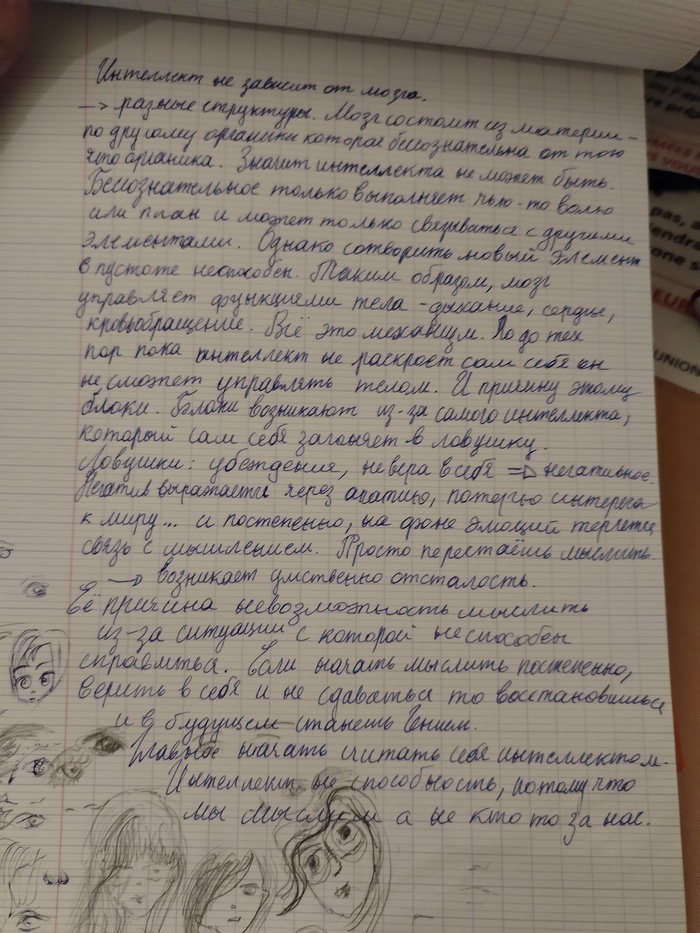 Интеллект не зависит от мозга.
—> разные структуры. Мозг состоит из материи –
по другому органики которая бессознательна от того
что органика. Значит интеллекта не может быть.
Бессознательное только выполняет чью-то волю
или план и может только связываться с другими
элементами. Однако сотворить новый элемент
в пустоте неспособен. Таким образом, мозг
управляет функциями тела - дыхание, сердце,
кровообращение. Всё это механизм. Но до тех
пор пока интеллект не раскроет сам себя он
не сможет управлять телом. И причину этому
блоки. Блоки возникают из-за самого интеллекта,
который сам себя загоняет в ловушку.
Ловушки: убеждения, не вера в себя => негативное.
Негатив выражается через апатию, потерю интереса
к миру... и постепенно, на фоне эмоций теряется
связь с мышлением. Просто перестаёшь мыслить.
—> возникает умственно отсталость.
Её причина невозможность мыслить
из-за ситуации с которой неспособен
справиться. Если начать мыслить постепенно,
верить в себя и не сдаваться то восстановишься
и в будущем станешь гением.
Главное начать считать себя интеллектом.
Интеллект не способность, потому что
мы мыслим а не кто то за нас.
pas, a
endra
one s
EUR
UNION